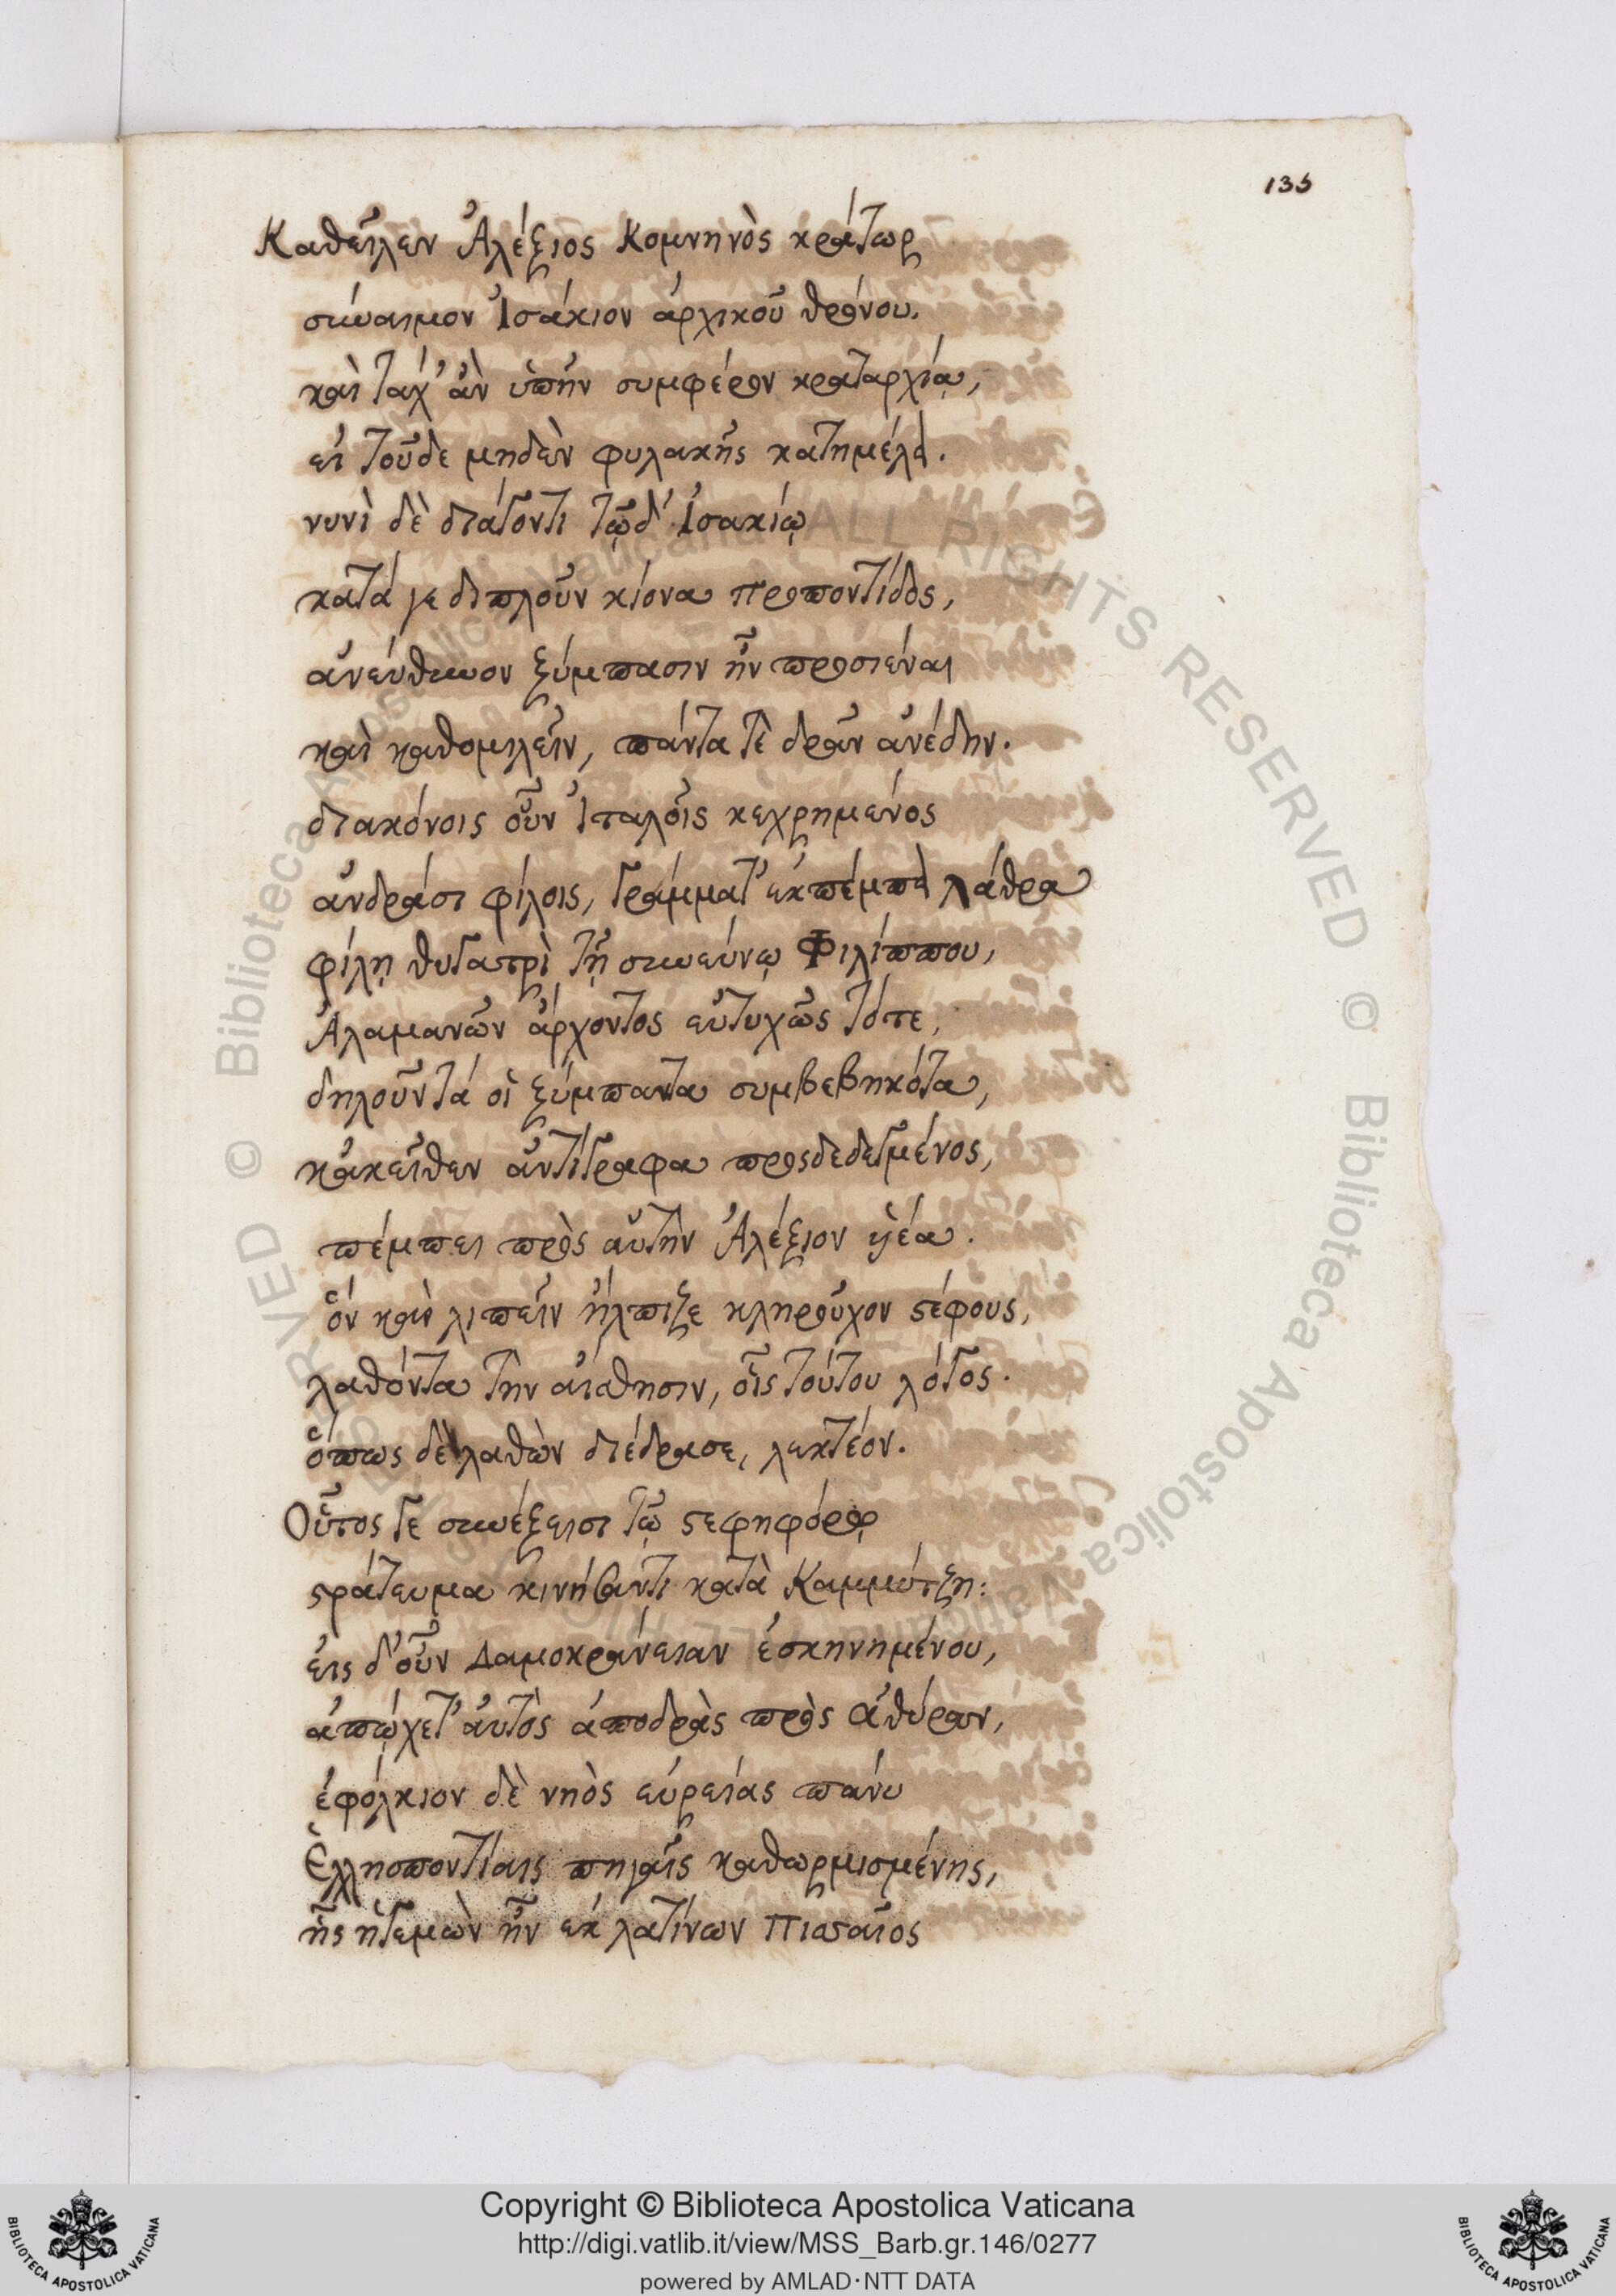 135
Καθεῖλεν Ἀλέξιος Κομνηνὸς κράτωρ
σύναιμον Ἰσάκιον ἀρχικοῦ θρόνου.
καὶ τάχ' ἂν ὑπῆν συμφέρον κραταρχίᾳ,
εἰ τοῦδε μηδὲν φυλακῆς κατημέλει.
νυνὶ δὲ διάγοντι τῷδ' Ἰσακίῳ
κατά γε διπλοῦν κίονα προποντίδος,
ἀνεύθυνον ξύμπασιν ἦν προσιέναι
καὶ καθομιλεῖν, πάντα τὲ δρᾶν ἀνέδην.
διακόνοις οὖν Ἰταλοῖς κεχρημένος
ἀνδράσι φίλοις, γράμματ' ἐκπέμπει λάθρα
φίλῃ θυγατρὶ τῇ συνεύνῳ Φιλίππου,
Ἀλαμανῶν ἄρχοντος εὐτυχῶς τότε,
δηλοῦντά οἱ ξύμπαντα συμβεβηκότα,
κἀκεῖθεν ἀντίγραφα προσδεδεγμένος,
πέμπει πρὸς αὐτὴν Ἀλέξιον ὑέα.
ὃν καὶ λιπεῖν ἤλπιζε κληροῦχον στέφους,
λαθόντα τὴν αἴσθησιν, οἷς τούτου λόγος.
ὅπως δὲ λαθὼν διέδρασε, λεκτέον.
Οὗτος γε συνέξεισι τῷ στεφηφόρῳ
στράτευμα κινήσαντι κατὰ Καμμύτζη:
εἰς δ' οὖν Δαμοκράνειαν ἐσκηνημένου,
ἀπῴχετ' αὐτὸς ἀποδρὰς πρὸς ἀθύραν,
ἐφόλκιον δὲ νηὸς εὑρείας πάνυ
Ἑλλησποντίαις πηγαῖς καθωρμισμένης,
ἧς ἡγεμὼν ἦν ἐκ λατίνων Πισσαῖος
Copyright © Biblioteca Apostolica Vaticana
http://digi.vatlib.it/view/MSS_Barb.gr.146/0277
powered by AMLAD·NTT DATA